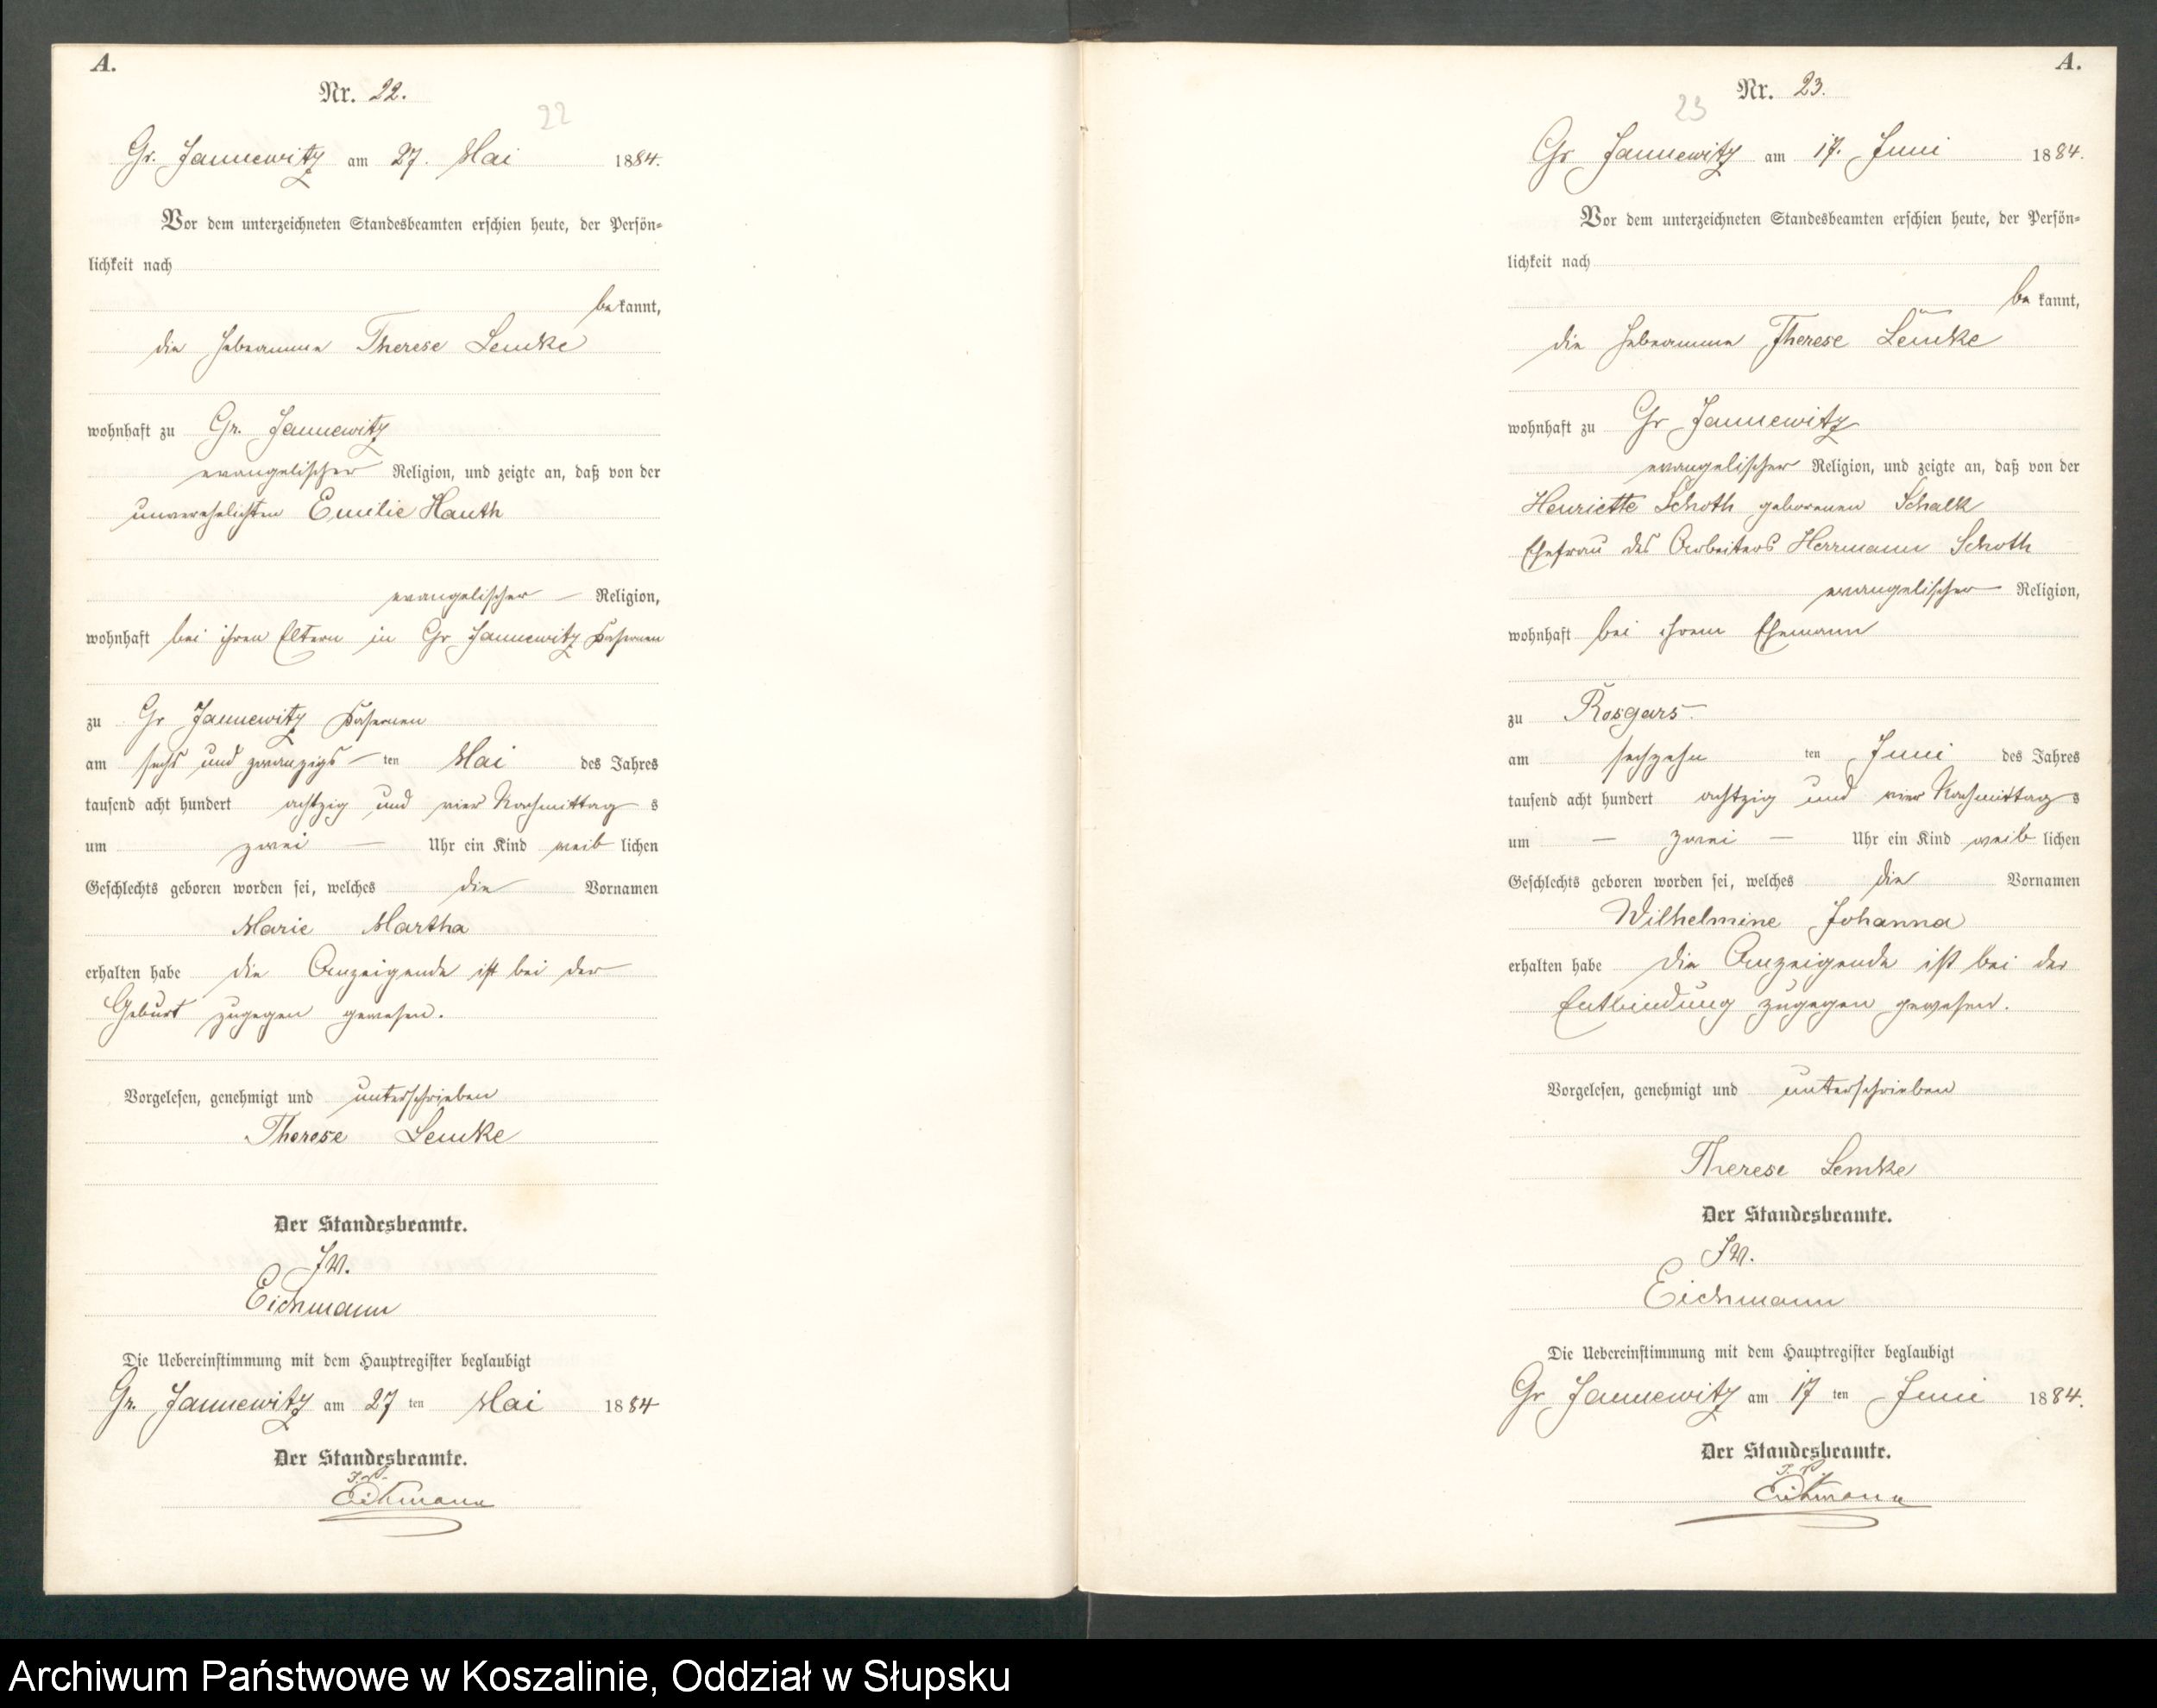 A.
Nr. 22.
22
Gr. Jannewitz am 27. Mai 1884.
Vor dem unterzeichneten Standesbeamten erschien heute, der Persön-
lichkeit nach
bekannt,
die Hebeamme Therese Lemke
wohnhaft zu Gr. Jannewitz
evangelischer Religion, und zeigte an, daß von der
unverehelichten Emilie Hauth
evangelischer — Religion,
wohnhaft bei ihren Eltern in Gr Jannewitz
zu Gr Jannewitz
am sechs und zwanzigs — ten Mai des Jahres
tausend acht hundert achtzig und vier Nachmittags
um zwei — Uhr ein Kind weiblichen
Geschlechts geboren worden sei, welches die Vornamen
Marie Martha
erhalten habe die Anzeigende ist bei der
Geburt zugegen gewesen.
Vorgelesen, genehmigt und unterschrieben
Therese Lemke
Der Standesbeamte.
J.V.
Eichmann
Die Uebereinstimmung mit dem Hauptregister beglaubigt
Gr. Jannewitz am 27 ten Mai 1884
Der Standesbeamte.
J.V.
Eichmann
A.
Nr. 23.
23
Gr Jannewitz am 17. Juni 1884.
Vor dem unterzeichneten Standesbeamten erschien heute, der Persön-
lichkeit nach
bekannt,
die Hebeamme Therese Lemke
wohnhaft zu Gr Jannewitz
evangelischer Religion, und zeigte an, daß von der
Henriette Schoth geborenen Schalk
Ehefrau des Arbeiters Herrmann Schoth
evangelischer Religion,
wohnhaft bei ihrem Ehemann
zu Rosgars
am sechzehn ten Juni des Jahres
tausend acht hundert achtzig und vier Nachmittags
um — zwei — Uhr ein Kind weiblichen
Geschlechts geboren worden sei, welches die Vornamen
Wilhelmine Johanna
erhalten habe die Anzeigende ist bei der
Entbindung zugegen gewesen.
Vorgelesen, genehmigt und unterschrieben
Therese Lemke
Der Standesbeamte.
J.V.
Eichmann
Die Uebereinstimmung mit dem Hauptregister beglaubigt
Gr Jannewitz am 17 ten Juni 1884.
Der Standesbeamte.
J.V.
Eichmann
Archiwum Państwowe w Koszalinie, Oddział w Słupsku